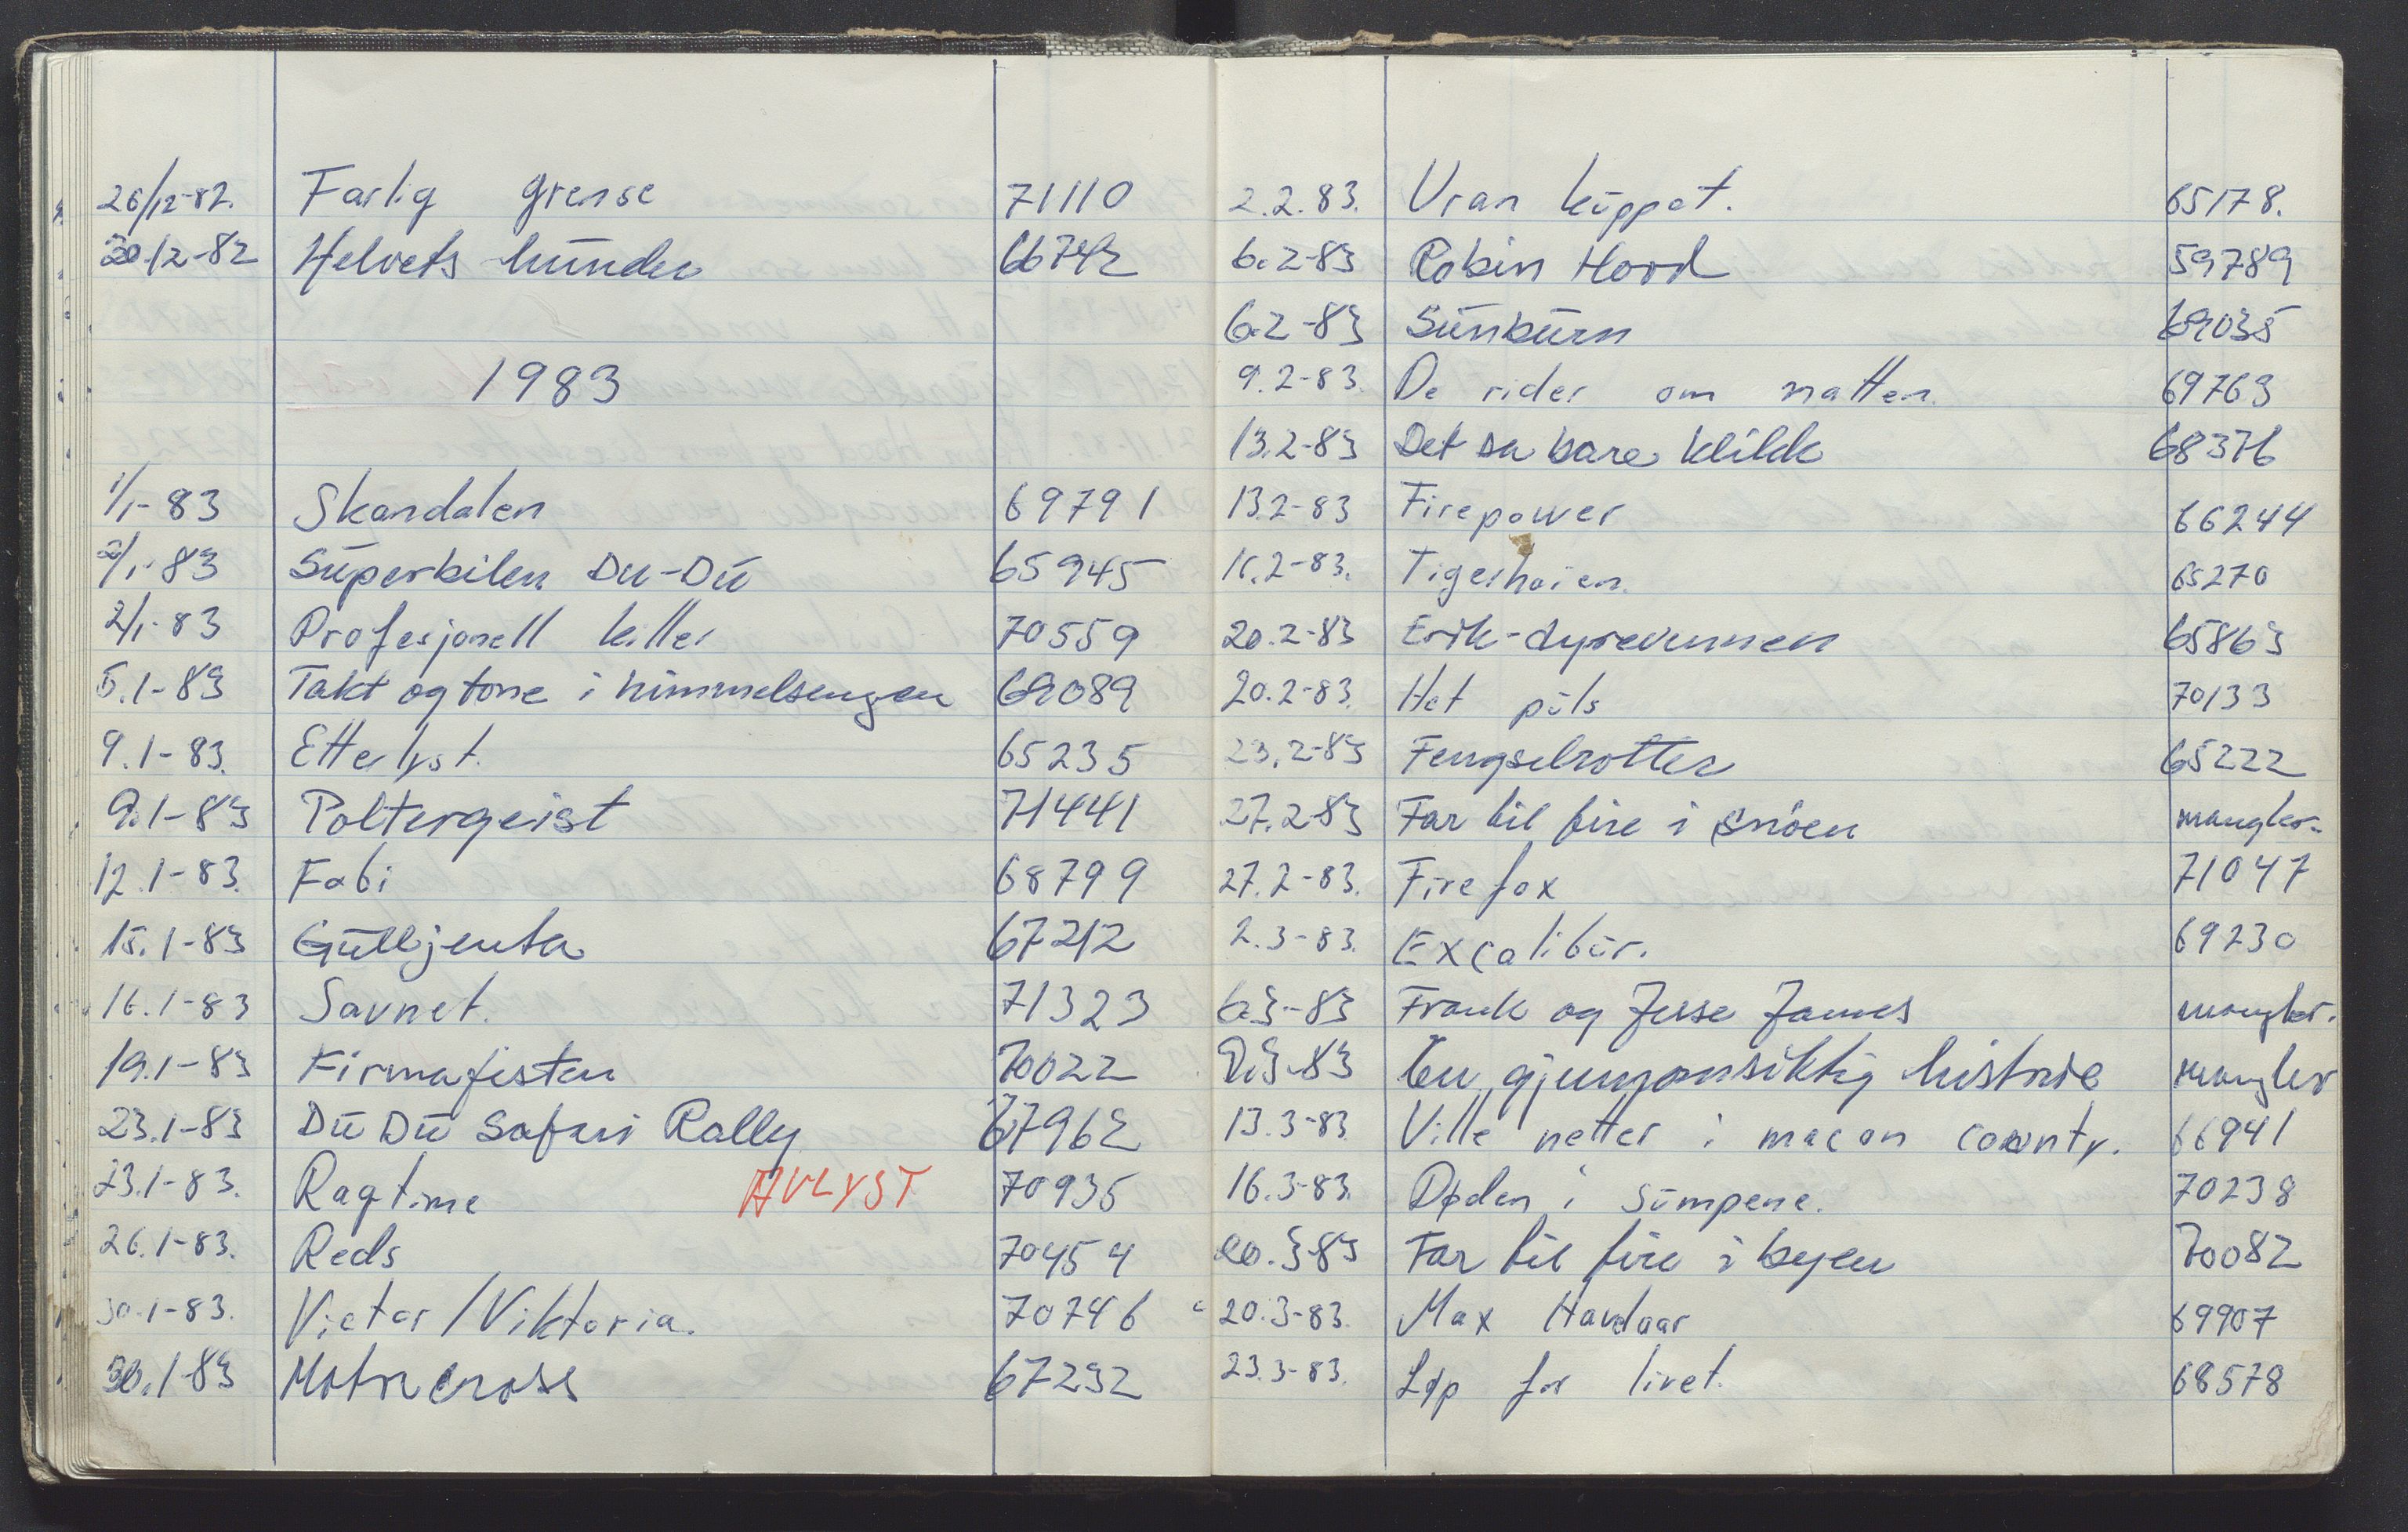 26/12-82. Farlig grense 71110
30/12-82 Helvets hunder 66742
1983
1/1-83 Skandalen 69791
2/1-83 Superbilen Du-Du 65945
2/1-83 Profesjonell killer 70559
5.1-83 Takt og tone i himmelsengen 69089
9.1-83. Etterlyst. 65235
9.1-83 Poltergeist 71441
12.1-83. Fabi 68799
15.1-83 Gulljenta 67212
16.1-83 Savnet. 71323
19.1-83 Firmafesten 70022
23.1-83 Du Du Safari Rally 67962
23.1-83. Ragtime AVLYST 70935
26.1-83. Reds 70454
30.1-83. Victor/Viktoria. 70746
30.1-83 Motorcross 67232
2.2.83. Uran kuppet. 65178.
6.2-83 Robin Hood 59789
6.2-83 Sunburn 69035
9.2-83. De rider om natten. 69763
13.2-83 Det sa bare klikk 68376
13.2-83 Firepower 66244
16.2-83. Tigerhaien. 65270
20.2-83 Erik-dyrevennen 65863
20.2-83. Het puls 70133
23.2-83 Fengselrotter 65222
27.2-83 Far til fire i snöen mangler.
27.2-83. Firefox 71047
2.3-83. Excalibur. 69230
6.3-83 Frank og Jesse James mangler.
9.3-83 En gjennomsiktig historie mangler
13.3-83. Ville netter i macon county. 66941
16.3-83. Døden i sumpene. 70238
20.3-83 Far til fire i byen 70082
20.3-83. Max Havelaar 69907
23.3-83. Løp for livet. 68578